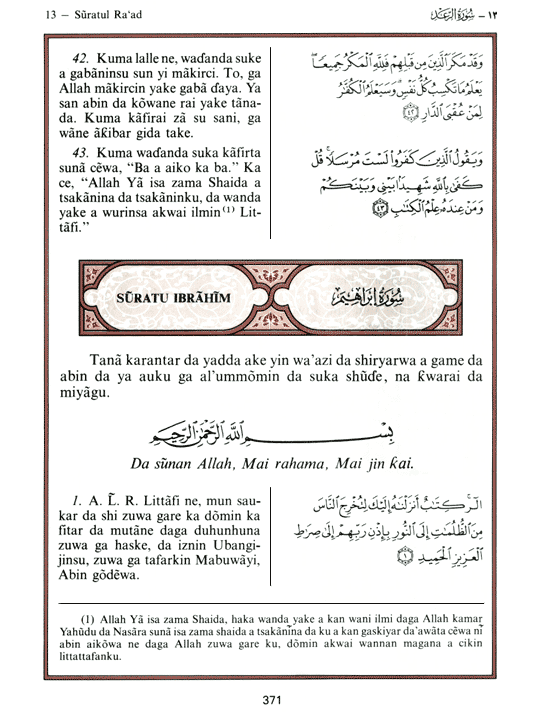 13 — Sũratul Ra'ad
١٣ - سُورَةُ الرَّعْدِ
42. Kuma lalle ne, waɗanda suke
a gabãninsu sun yi mãkirci. To, ga
Allah mãkircin yake gabã ɗaya. Ya
san abin da kõwane rai yake tãna-
da. Kuma kãfirai zã su sani, ga
wãne ãƙibar gida take.
وَقَدْ مَكَرَ الَّذِينَ مِن قَبْلِهِمْ فَلِلَّهِ الْمَكْرُ جَمِيعًا
يَعْلَمُ مَا تَكْسِبُ كُلُّ نَفْسٍ وَسَيَعْلَمُ الْكُفَّارُ
لِمَنْ عُقْبَى الدَّارِ ﴿٤٢﴾
43. Kuma waɗanda suka kãfirta
sunã cẽwa, “Ba a aiko ka ba.” Ka
ce, “Allah Yã isa zama Shaida a
tsakãnina da tsakãninku, da wanda
yake a wurinsa akwai ilmin⁽¹⁾ Lit-
tãfi.”
وَيَقُولُ الَّذِينَ كَفَرُوا لَسْتَ مُرْسَلًا قُلْ
كَفَىٰ بِاللَّهِ شَهِيدًا بَيْنِي وَبَيْنَكُمْ
وَمَنْ عِندَهُ عِلْمُ الْكِتَابِ ﴿٤٣﴾
SŨRATU IBRÃHĨM
سُورَةُ إِبْرَاهِيمَ
Tanã karantar da yadda ake yin wa'azi da shiryarwa a game da
abin da ya auku ga al'ummõmin da suka shũɗe, na ƙwarai da
miyãgu.
بِسْمِ اللَّهِ الرَّحْمَٰنِ الرَّحِيمِ
Da sũnan Allah, Mai rahama, Mai jin ƙai.
1. A. L̃. R. Littãfi ne, mun sau-
kar da shi zuwa gare ka dõmin ka
fitar da mutãne daga duhunhuna
zuwa ga haske, da iznin Ubangi-
jinsu, zuwa ga tafarkin Mabuwãyi,
Abin gõdẽwa.
الٓر كِتَابٌ أَنزَلْنَاهُ إِلَيْكَ لِتُخْرِجَ النَّاسَ
مِنَ الظُّلُمَاتِ إِلَى النُّورِ بِإِذْنِ رَبِّهِمْ إِلَىٰ صِرَاطِ
الْعَزِيزِ الْحَمِيدِ ﴿١﴾
(1) Allah Yã isa zama Shaida, haka wanda yake a kan wani ilmi daga Allah kamar
Yahũdu da Nasãra sunã isa zama shaida a tsakãnĩna da ku a kan gaskiyar da'awãta cẽwa nĩ
abin aikõwa ne daga Allah zuwa gare ku, dõmin akwai wannan magana a cikin
littattafanku.
371